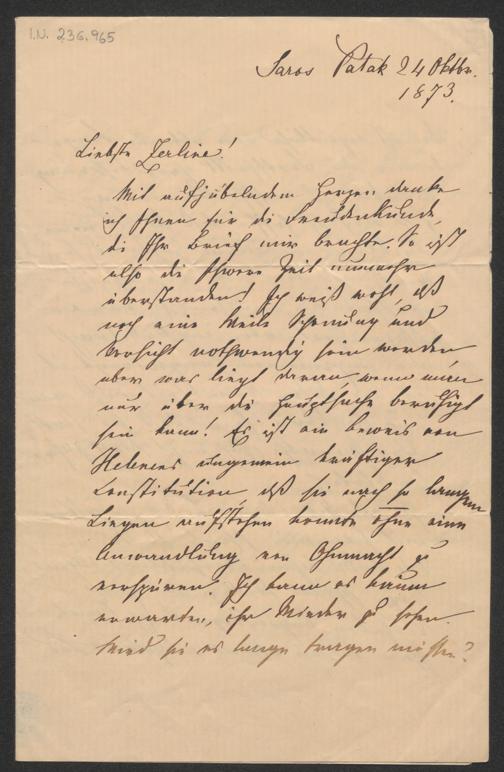 I.N. 236.965
Saros Patak 24 Oktbr.
1873.
Liebste Zerline!
Mit aufjubelndem Herzen danke
ich Ihnen für die Freudenkunde,
die Ihr Brief mir brachte. So ist
also die schwere Zeit nunmehr
überstanden! Ich weiß wohl, daß
noch eine Weile Schonung und
Vorsicht nothwendig sein werden,
aber was liegt daran, wenn man
nur über die Hauptsache beruhigt
sein kann! Es ist ein Beweis von
Helenes ungemein kräftiger
Constitution, daß sie nach so langem
Liegen aufstehen konnte ohne eine
Anwandlung von Ohnmacht zu
verspüren. Ich kann es kaum
erwarten, ihr Mieder zu sehen.
Wird sie es lange tragen müssen?